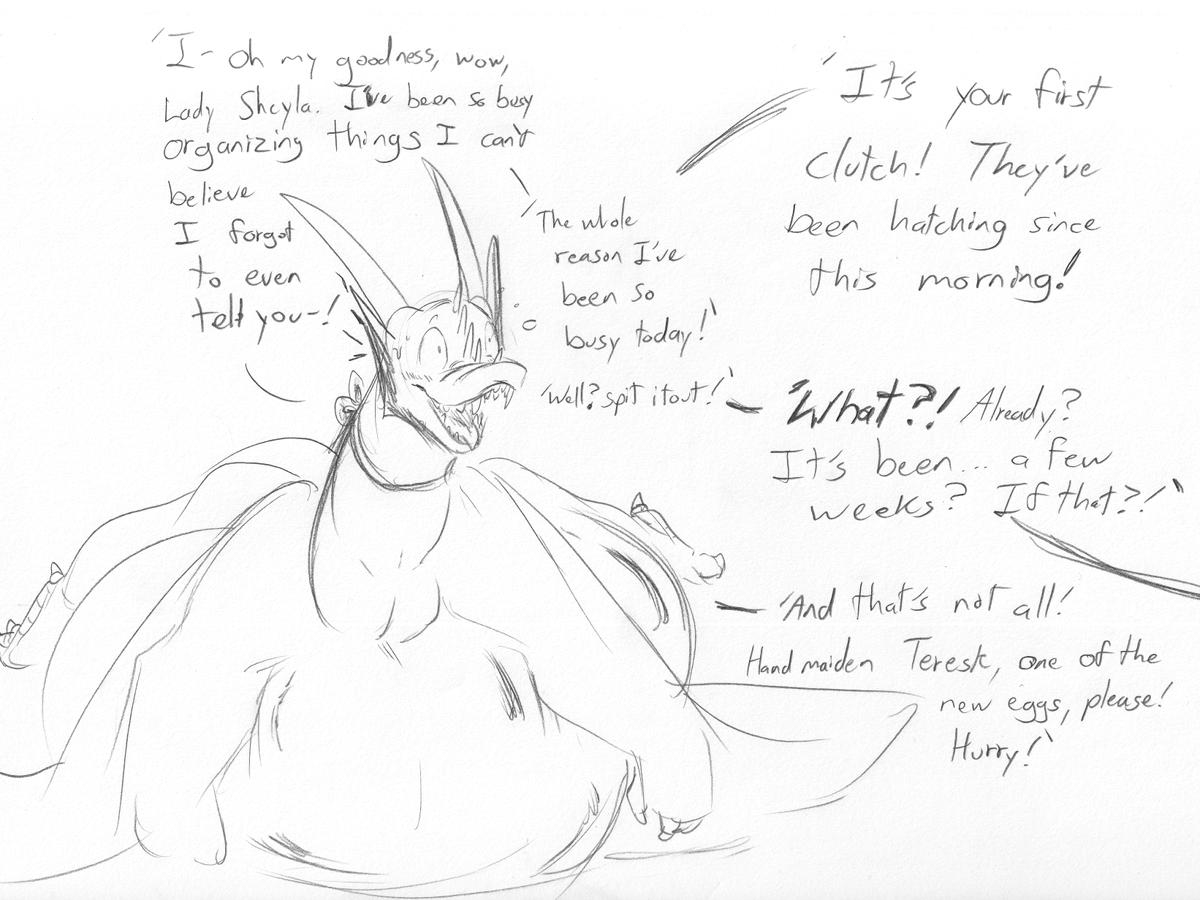 'I- oh my goodness, wow,
Lady Sheyla. I've been so busy
organizing things I can't
believe
I forgot
to even
tell you-!
'The whole
reason I've
been so
busy today!'
'Well? spit it out!'
'It's your first
clutch! They've
been hatching since
this morning!
'What?! Already?
It's been... a few
weeks? If that?!'
'And that's not all!
Handmaiden Teresk, one of the
new eggs, please!
Hurry!'